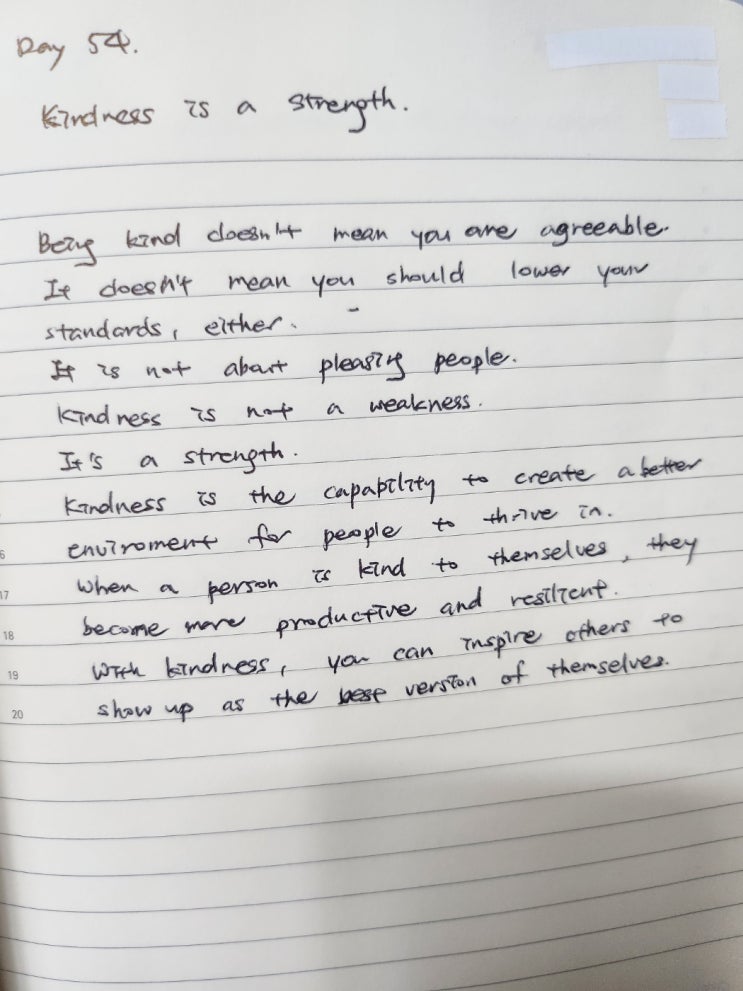 Day 54.
Kindness is a strength.
Being kind doesn't mean you are agreeable.
It doesn't mean you should lower your
standards, either.
It is not about pleasing people.
Kindness is not a weakness.
It's a strength.
Kindness is the capability to create a better
enviroment for people to thrive in.
17 When a person is kind to themselves, they
18 become more productive and resilient.
19 With kindness, you can inspire others to
20 show up as the best version of themselves.